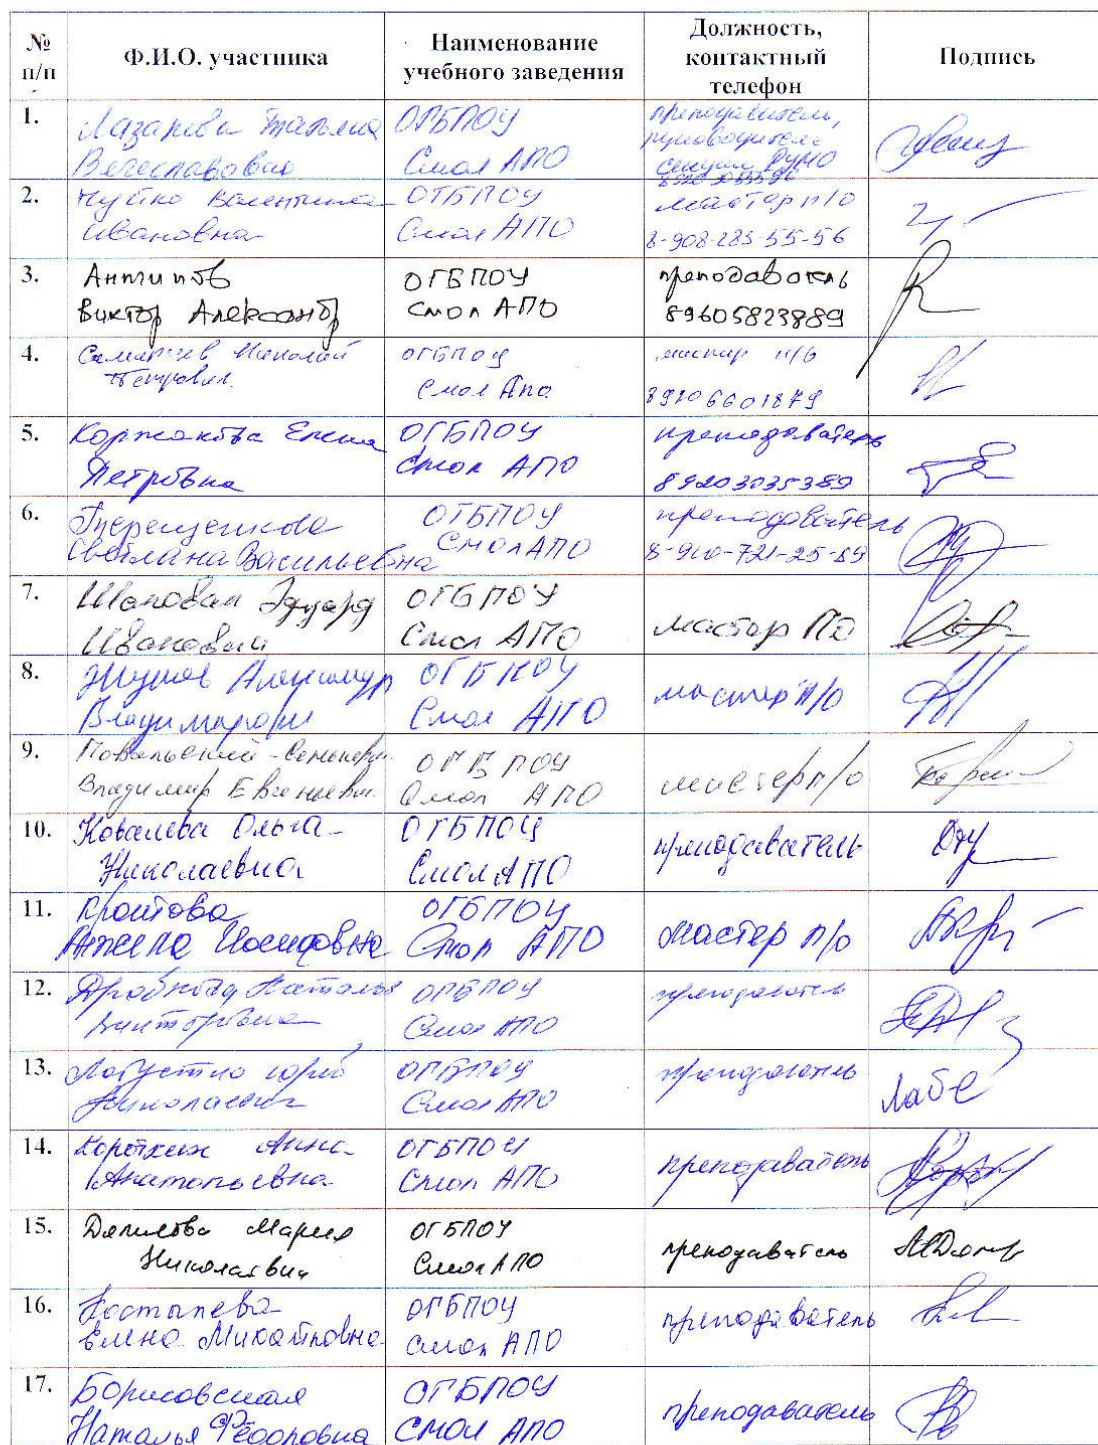 № п/п
Ф.И.О. участника
Наименование учебного заведения
Должность, контактный телефон
Подпись
1.
Лазарева Татьяна
Вячеславовна
ОГБПОУ
СмолАПО
преподаватель,
руководитель
секции РУМО
2.
Чуйко Валентина
Ивановна
ОГБПОУ
СмолАПО
мастер п/о
8-908-283-55-56
3.
Антипов
Виктор Александр
ОГБПОУ
Смол АПО
преподаватель
89605823889
4.
Николай
Петрович
ОГБПОУ
Смол Апо
мастер п/о
89106601879
5.
Коржакова Елена
Петровна
ОГБПОУ
Смол АПО
преподаватель
89203035389
6.
Терещенкова
Светлана Васильевна
ОГБПОУ
СмолАПО
преподаватель
8-910-721-25-89
7.
Шаповал Эдуард
Иванович
ОГБПОУ
Смол АПО
мастер ПО
8.
Александр
Владимирович
ОГБПОУ
Смол АПО
мастер п/о
9.
Владимир Евгеньевич
ОГБ ПОУ
Смол АПО
мастер п/о
10.
Ковалева Ольга
Николаевна
ОГБПОУ
СмолАПО
преподаватель
11.
Кроитова
Анжела Иосифовна
ОГБПОУ
Смол АПО
мастер п/о
12.
Наталья
Викторовна
ОГБПОУ
Смол АПО
преподаватель
13.
Юрий
Николаевич
ОГБПОУ
Смол АПО
преподаватель
Лабе
14.
Коротких Анна
Анатольевна
ОГБПОУ
Смол АПО
преподаватель
15.
Данилова Мария
Николаевна
ОГБПОУ
Смол АПО
преподаватель
16.
Костылева
Елена Михайловна
ОГБПОУ
Смол АПО
преподаватель
17.
Борисовская
Наталья Фёдоровна
ОГБПОУ
Смол АПО
преподаватель